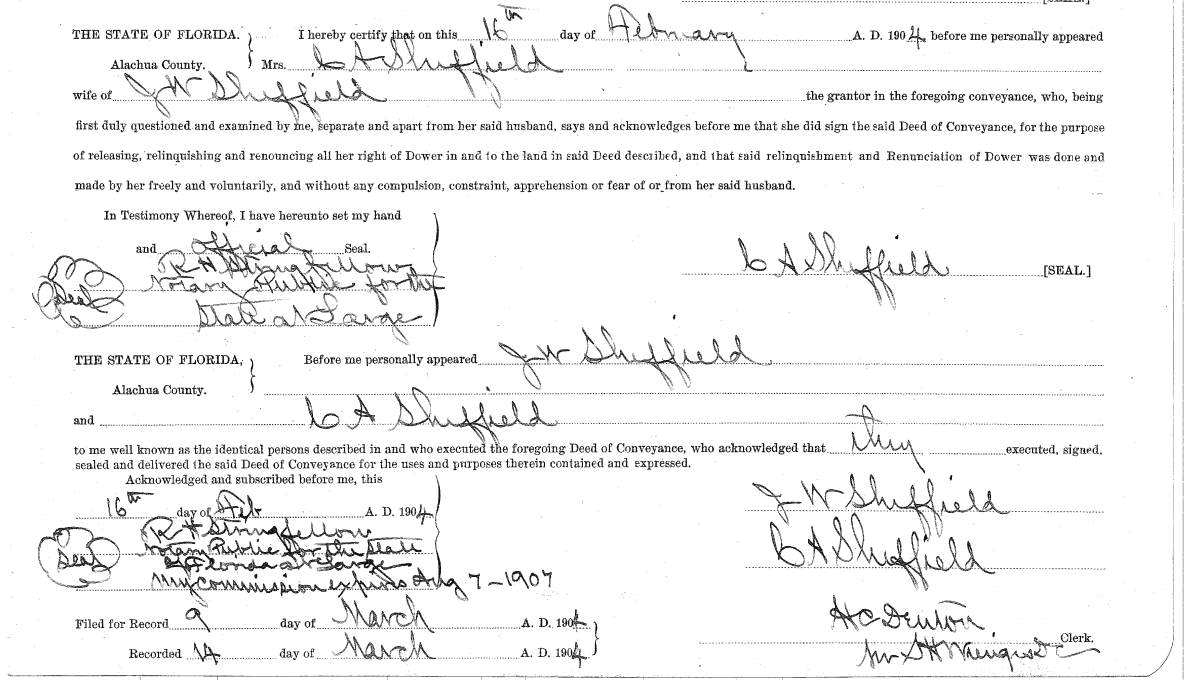 [SEAL.]
THE STATE OF FLORIDA. } I hereby certify that on this 16th day of February A. D. 1904 before me personally appeared
Alachua County. Mrs. C A Sheffield
wife of J W Sheffield the grantor in the foregoing conveyance, who, being
first duly questioned and examined by me, separate and apart from her said husband, says and acknowledges before me that she did sign the said Deed of Conveyance, for the purpose
of releasing, relinquishing and renouncing all her right of Dower in and to the land in said Deed described, and that said relinquishment and Renunciation of Dower was done and
made by her freely and voluntarily, and without any compulsion, constraint, apprehension or fear of or from her said husband.
In Testimony Whereof, I have hereunto set my hand
and official Seal.
R H Stringfellow
C A Sheffield [SEAL.]
Seal Notary Public for the
State at Large
THE STATE OF FLORIDA, } Before me personally appeared J W Sheffield
Alachua County.
and C A Sheffield
to me well known as the identical persons described in and who executed the foregoing Deed of Conveyance, who acknowledged that they executed, signed,
sealed and delivered the said Deed of Conveyance for the uses and purposes therein contained and expressed.
Acknowledged and subscribed before me, this
16th day of Feb A. D. 1904
J W Sheffield
R H Stringfellow
Seal Notary Public for the State
C A Sheffield
of Florida at Large
My commission expires Aug 7-1907
Filed for Record 9 day of March A. D. 1904
H C Denton
Clerk.
Recorded 14 day of March A. D. 1904